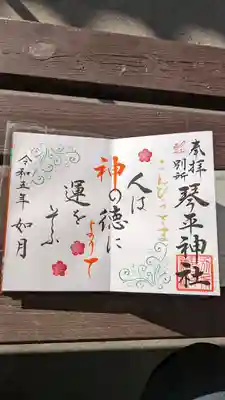 奉拝
別所
琴平神社
こんぴらさま
人は
神の徳に
よりて
運を
添ふ
令和五年 如月